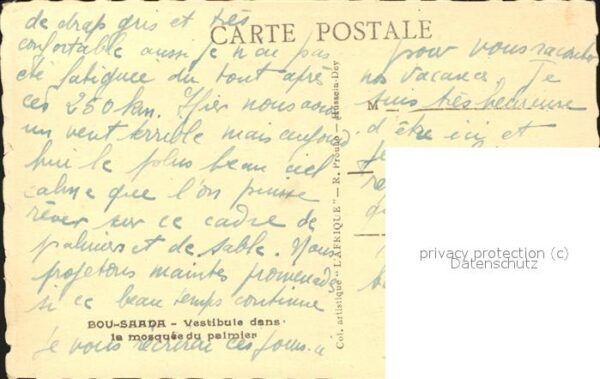 de drap gris et très
confortable aussi je n'ai pas
été fatiguée du tout après
ces 250 km. Hier nous avons
un vent terrible mais aujourd
hui le plus beau ciel
calme que l'on puisse
rêver sur ce cadre de
palmiers et de sable. Nous
projetons maintes promenades
si ce beau temps continue
BOU-SAADA - Vestibule dans
la mosquée du palmier
Je vous récrirai ces jours-ci
CARTE POSTALE
pour vous raconter
nos vacances. Je
M
suis très heureuse
d'être ici et
Col. artistique "L'AFRIQUE" - R. Prouho - Hussein-Dey
privacy protection (c)
Datenschutz